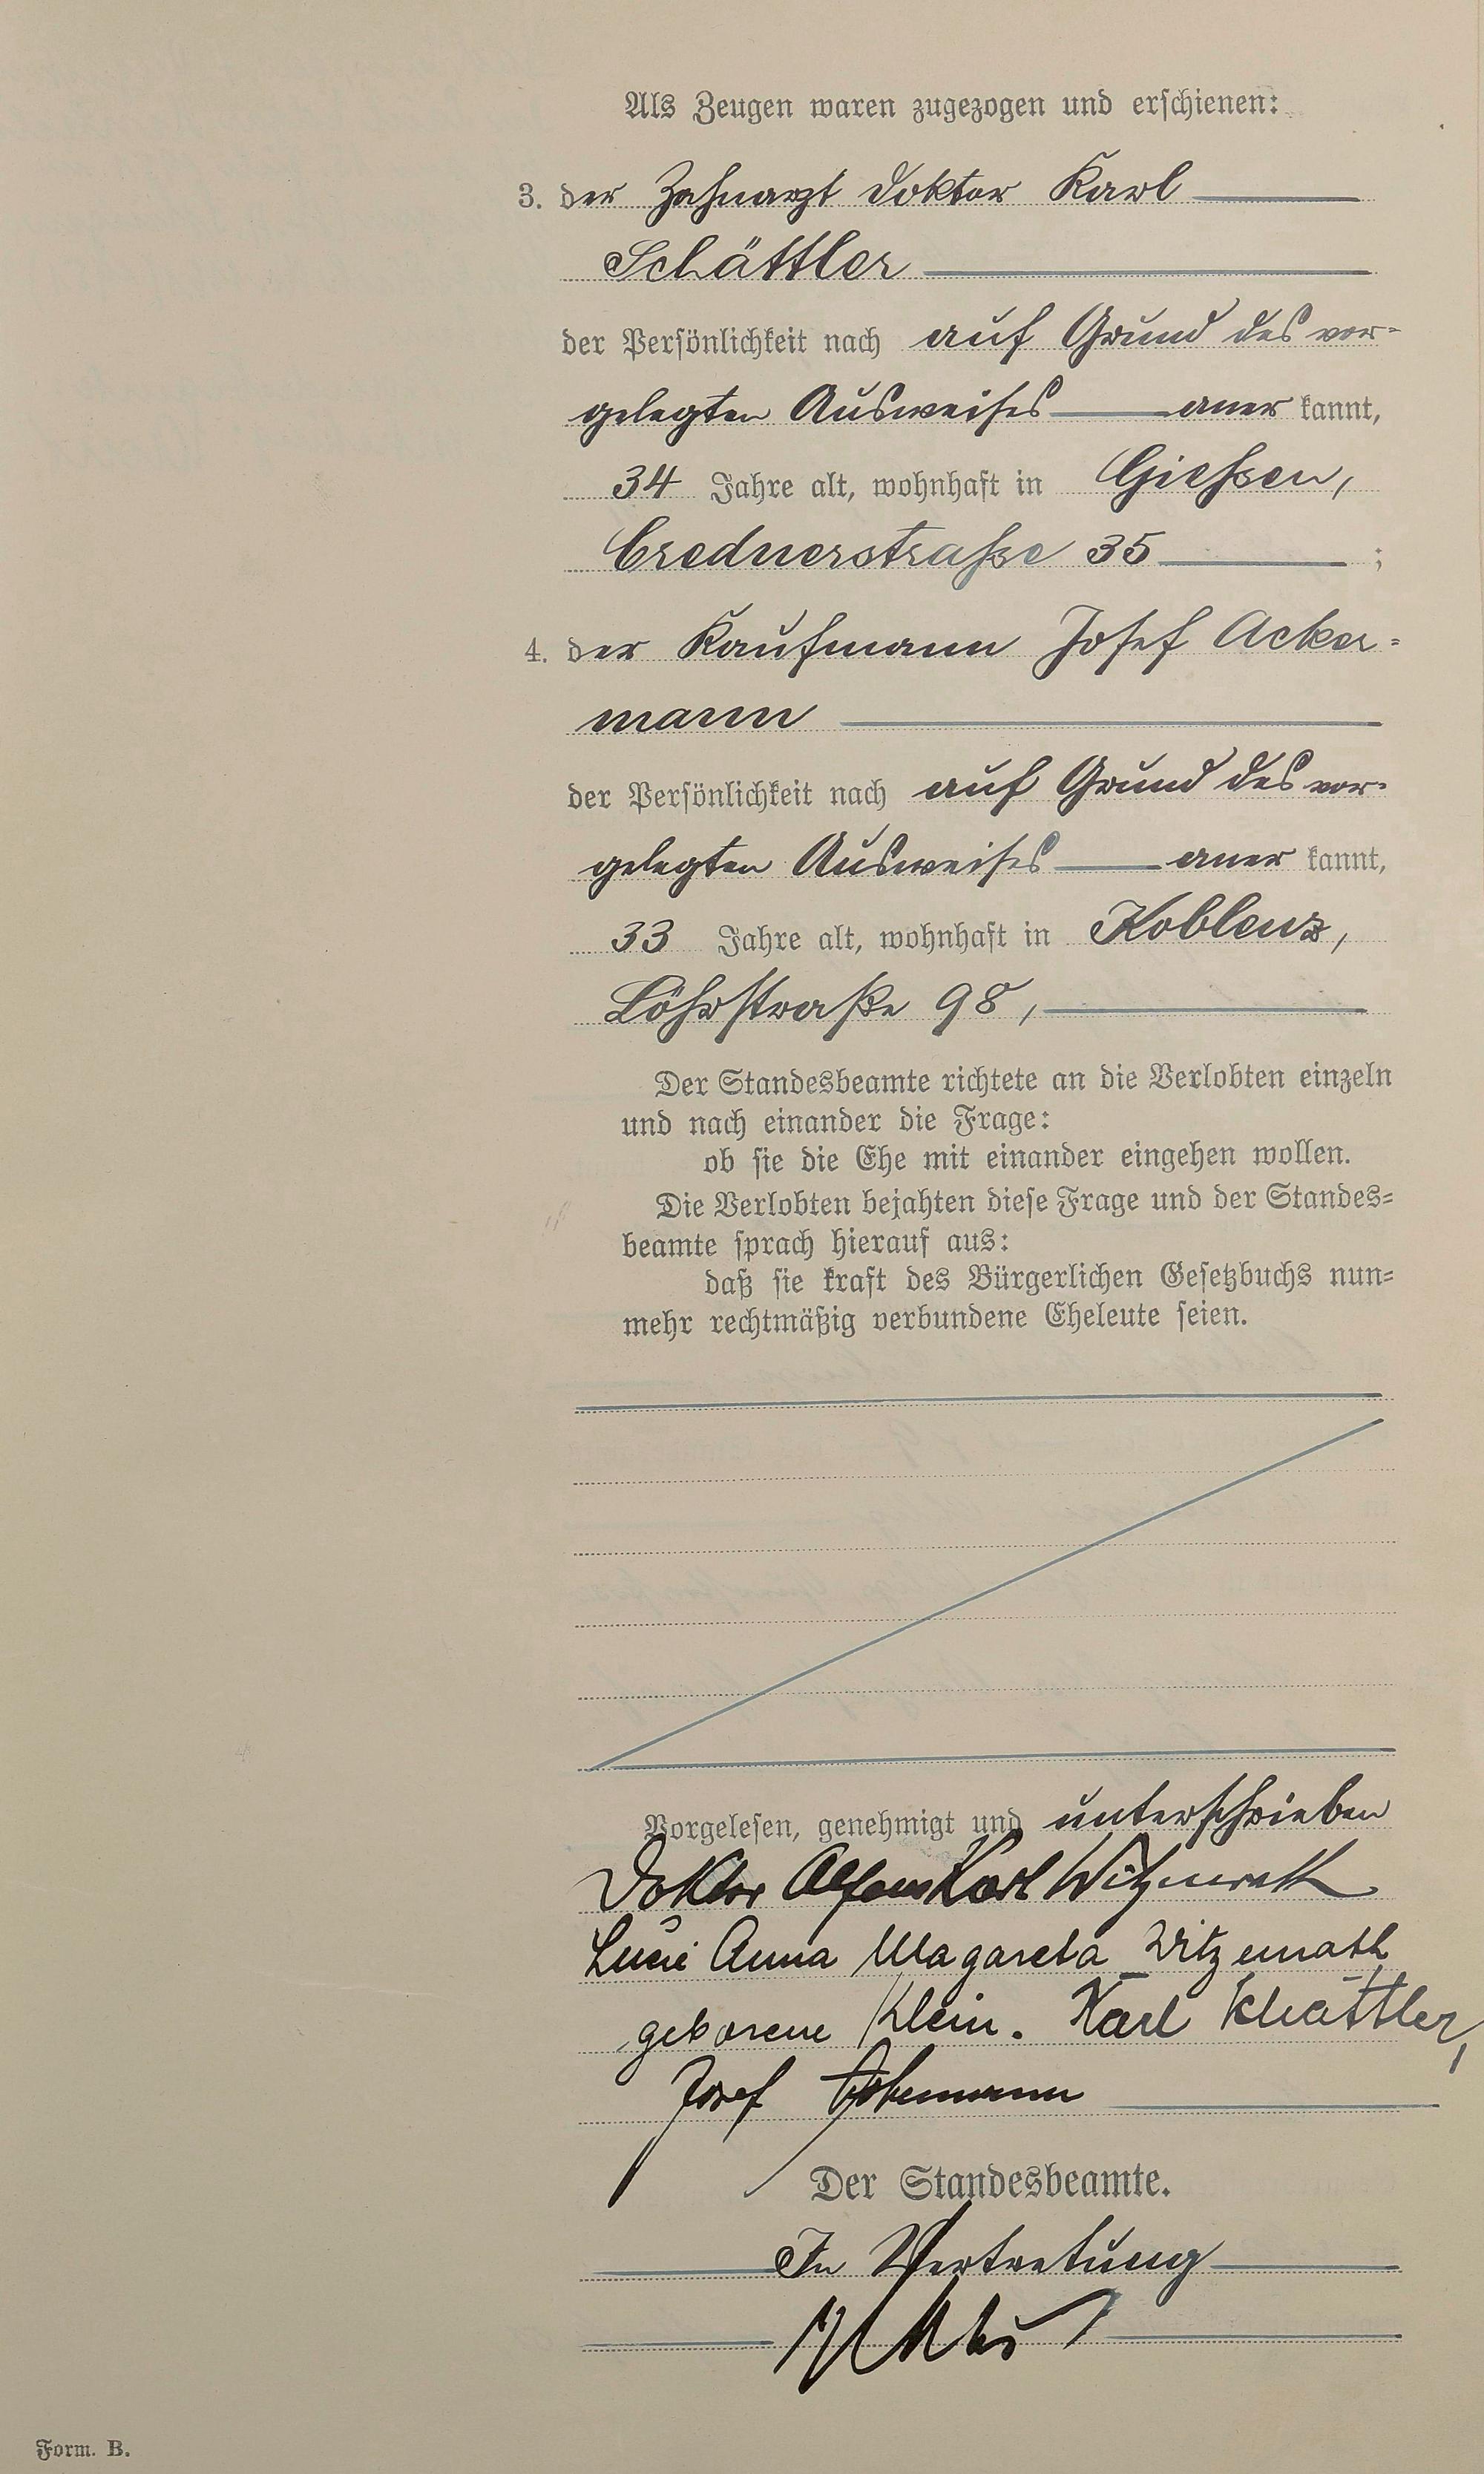 Als Zeugen waren zugezogen und erschienen:
3. der Zahnarzt Doktor Karl
Schättler
der Persönlichkeit nach auf Grund des vor-
gelegten Ausweises aner kannt,
34 Jahre alt, wohnhaft in Giessen,
Crednerstrasse 35 ;
4. der Kaufmann Josef Acker-
mann
der Persönlichkeit nach auf Grund des vor-
gelegten Ausweises aner kannt,
33 Jahre alt, wohnhaft in Koblenz,
Löhrstraße 98,
Der Standesbeamte richtete an die Verlobten einzeln
und nach einander die Frage:
ob sie die Ehe mit einander eingehen wollen.
Die Verlobten bejahten diese Frage und der Standes-
beamte sprach hierauf aus:
daß sie kraft des Bürgerlichen Gesetzbuchs nun-
mehr rechtmäßig verbundene Eheleute seien.
Vorgelesen, genehmigt und unterschrieben
Doktor Alfons Karl Witzmrath
Lucie Anna Magareta Witzenrath
geborene Klein. Karl Schättler,
Josef Ackermann
Der Standesbeamte.
In Vertretung
Form. B.